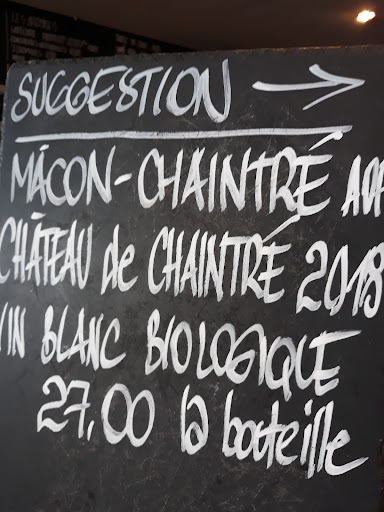 SUGGESTION →
MÂCON-CHAINTRÉ AOP
CHÂTEAU de CHAINTRÉ 2018
VIN BLANC BIOLOGIQUE
27.00 la bouteille